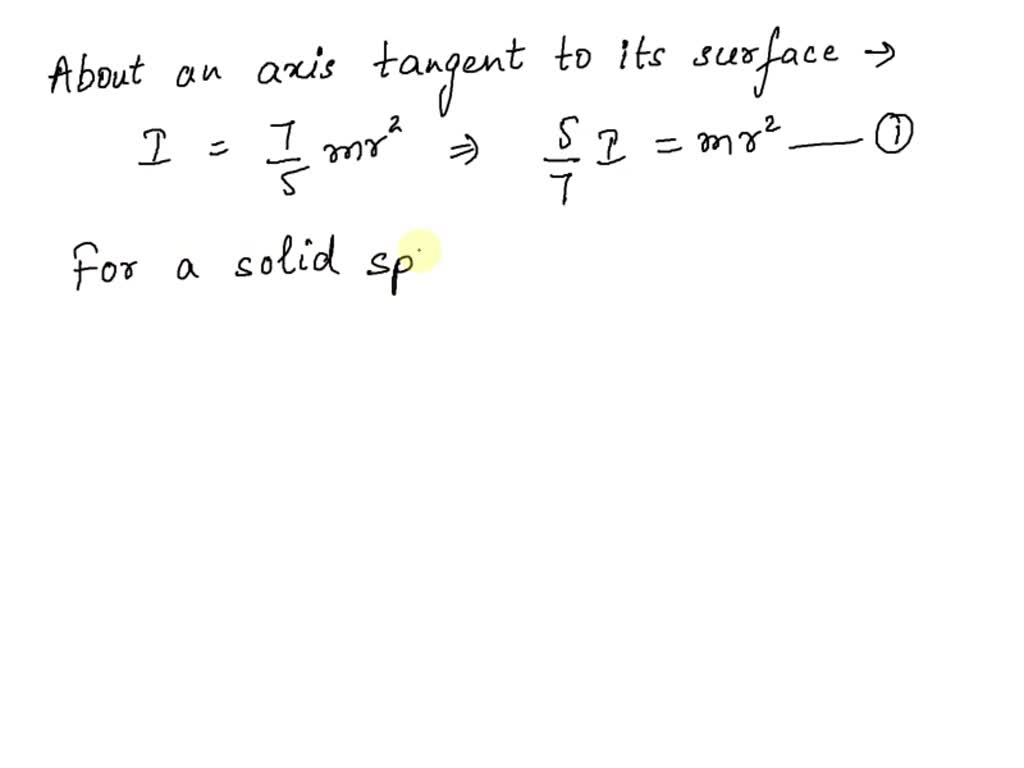 About an axis tangent to its surface →
I = 7/5 mr² ⇒ 5/7 I = mr² — ①
For a solid sp